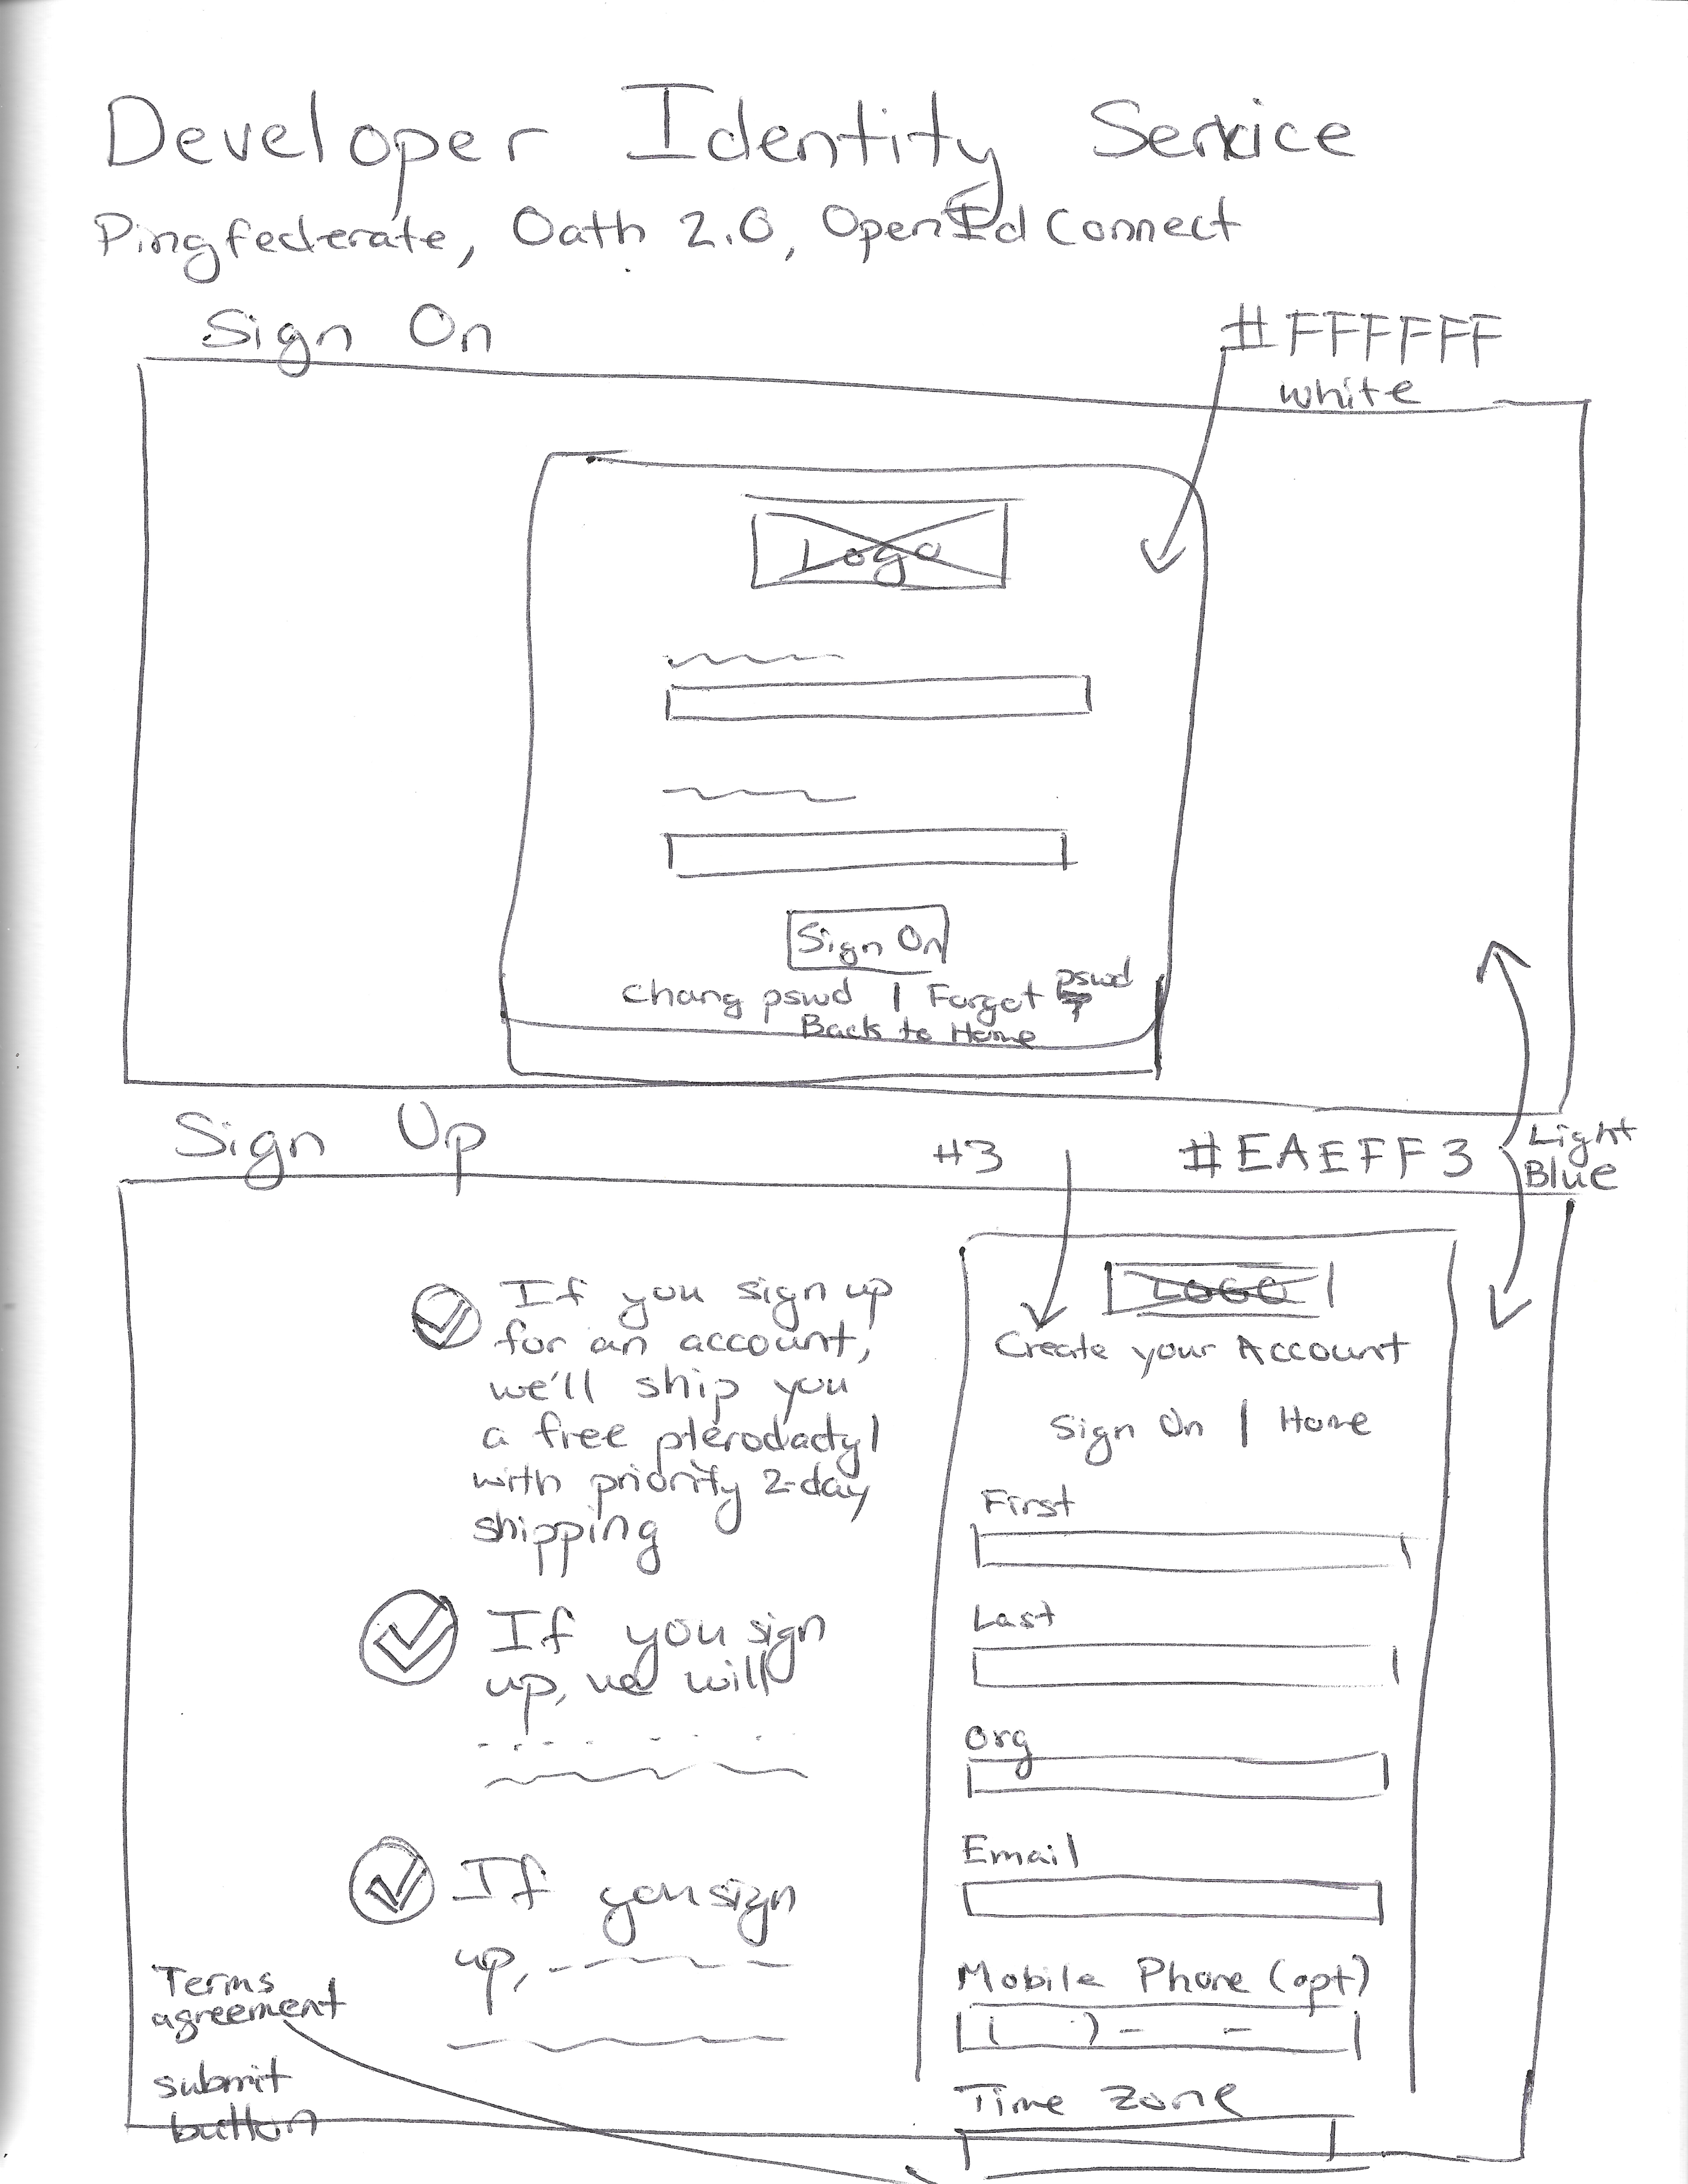 Developer Identity Service
Pingfederate, Oath 2.0, OpenId Connect
Sign On
#FFFFFF
white
Logo
Sign On
Chang pswd | Forgot pswd
?
Back to Home
Sign Up
#3
#EAEFF3
Light
Blue
If you sign up
for an account,
we'll ship you
a free pterodactyl
with priority 2-day
shipping
If you sign
up, we will
If you sign
up,
Terms
agreement
submit
button
LOGO
Create your Account
Sign On | Home
First
Last
Org
Email
Mobile Phone (opt)
( ) - -
Time Zone